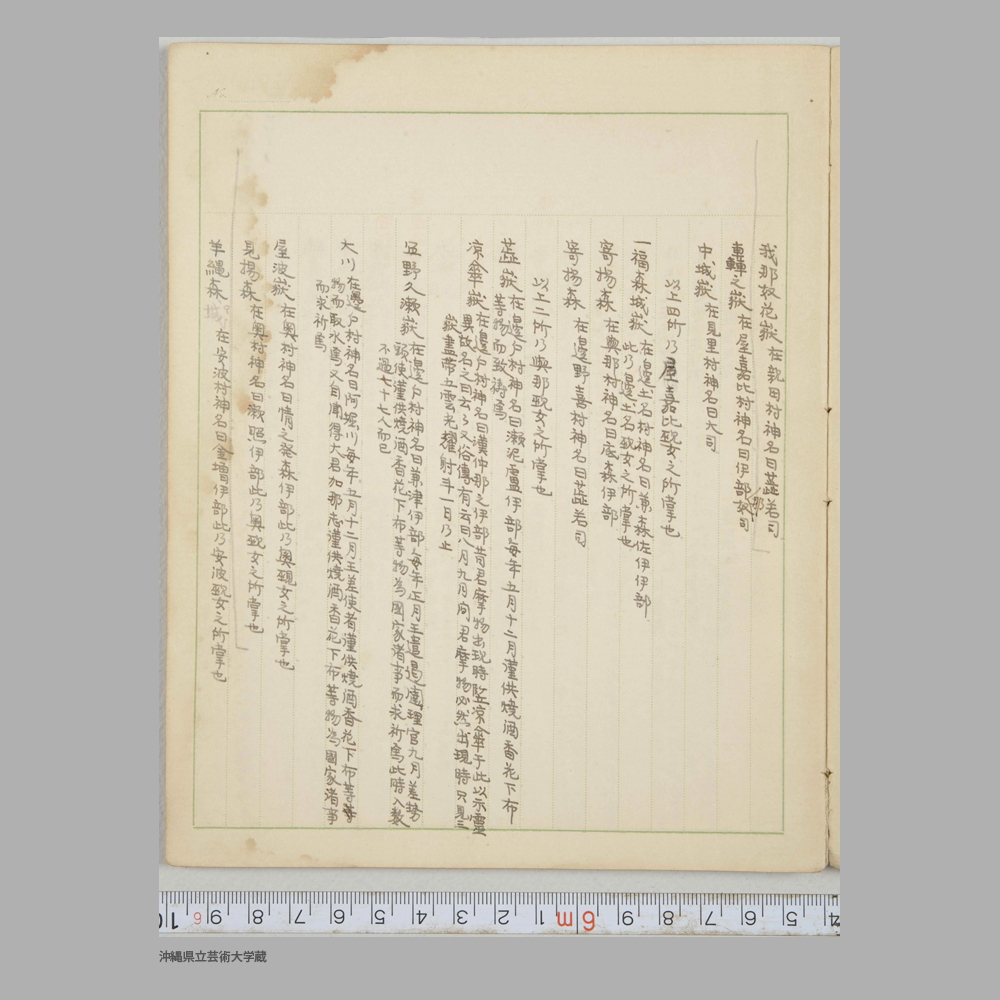 我那奴花嶽 在親田村神名曰蓋若司
轟之嶽 在屋嘉比村神名曰伊部奴司
那
中城嶽 在見里村神名曰大司
以上四所乃屋嘉比覡女之所掌也
一福森城嶽 在邊土名村神名曰兼森佐伊伊部
此乃邊土名覡女之所掌也
寄揚森 在與那村神名曰底森伊部
寄揚森 在邊野喜村神名曰蓋若司
以上二所乃與那覡女之所掌也
蓋嶽 在邊戸村神名曰瀬泥盧伊部每年五月十二月謹供燒酒香花下布
等物而致禱焉
凉傘嶽 在邊戸村神名曰漢仲那之伊部昔君摩物出現時竪凉傘于此以示靈
異故名之曰云々又俗傳有云曰八月九月間君摩物必然出現時只見三
嶽盡帶五雲光耀射斗一日乃止
宜野久瀬嶽 在邊戸村神名曰兼津伊部每年正月王遣 理官九月差勢
頭使謹供燒酒香花下布等物為國家諸事而求祈焉此時人數
不過七十七人而已
大川 在邊戸村神名曰阿堀川每年五月十二月王差使者謹供燒酒香花下布等
物而取水焉又自聞得大君加那志謹供燒酒香花下布等物為國家諸事
而求祈焉
屋波嶽 在奧村神名曰情之発森伊部此乃奧覡女之所掌也
見揚森 在奧村神名曰瀬照伊部此乃奧覡女之所掌也
羊繩森 在安波村神名曰金増伊部此乃安波覡女之所掌也
10 6 9 8 7 6 5 4 3 2 1 m6 9 8 7 6 5 4
沖縄県立芸術大学蔵